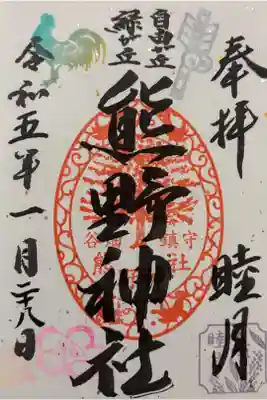 奉拝
睦月
自由が丘
緑が丘
熊野神社
谷
鎮守
社
睦
令和五年一月二十八日